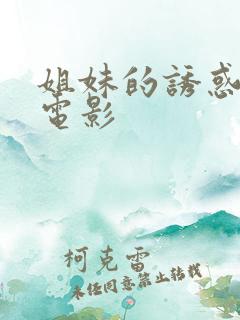 姐妹的誘惑
電影
柯克雷
未经同意禁止转载